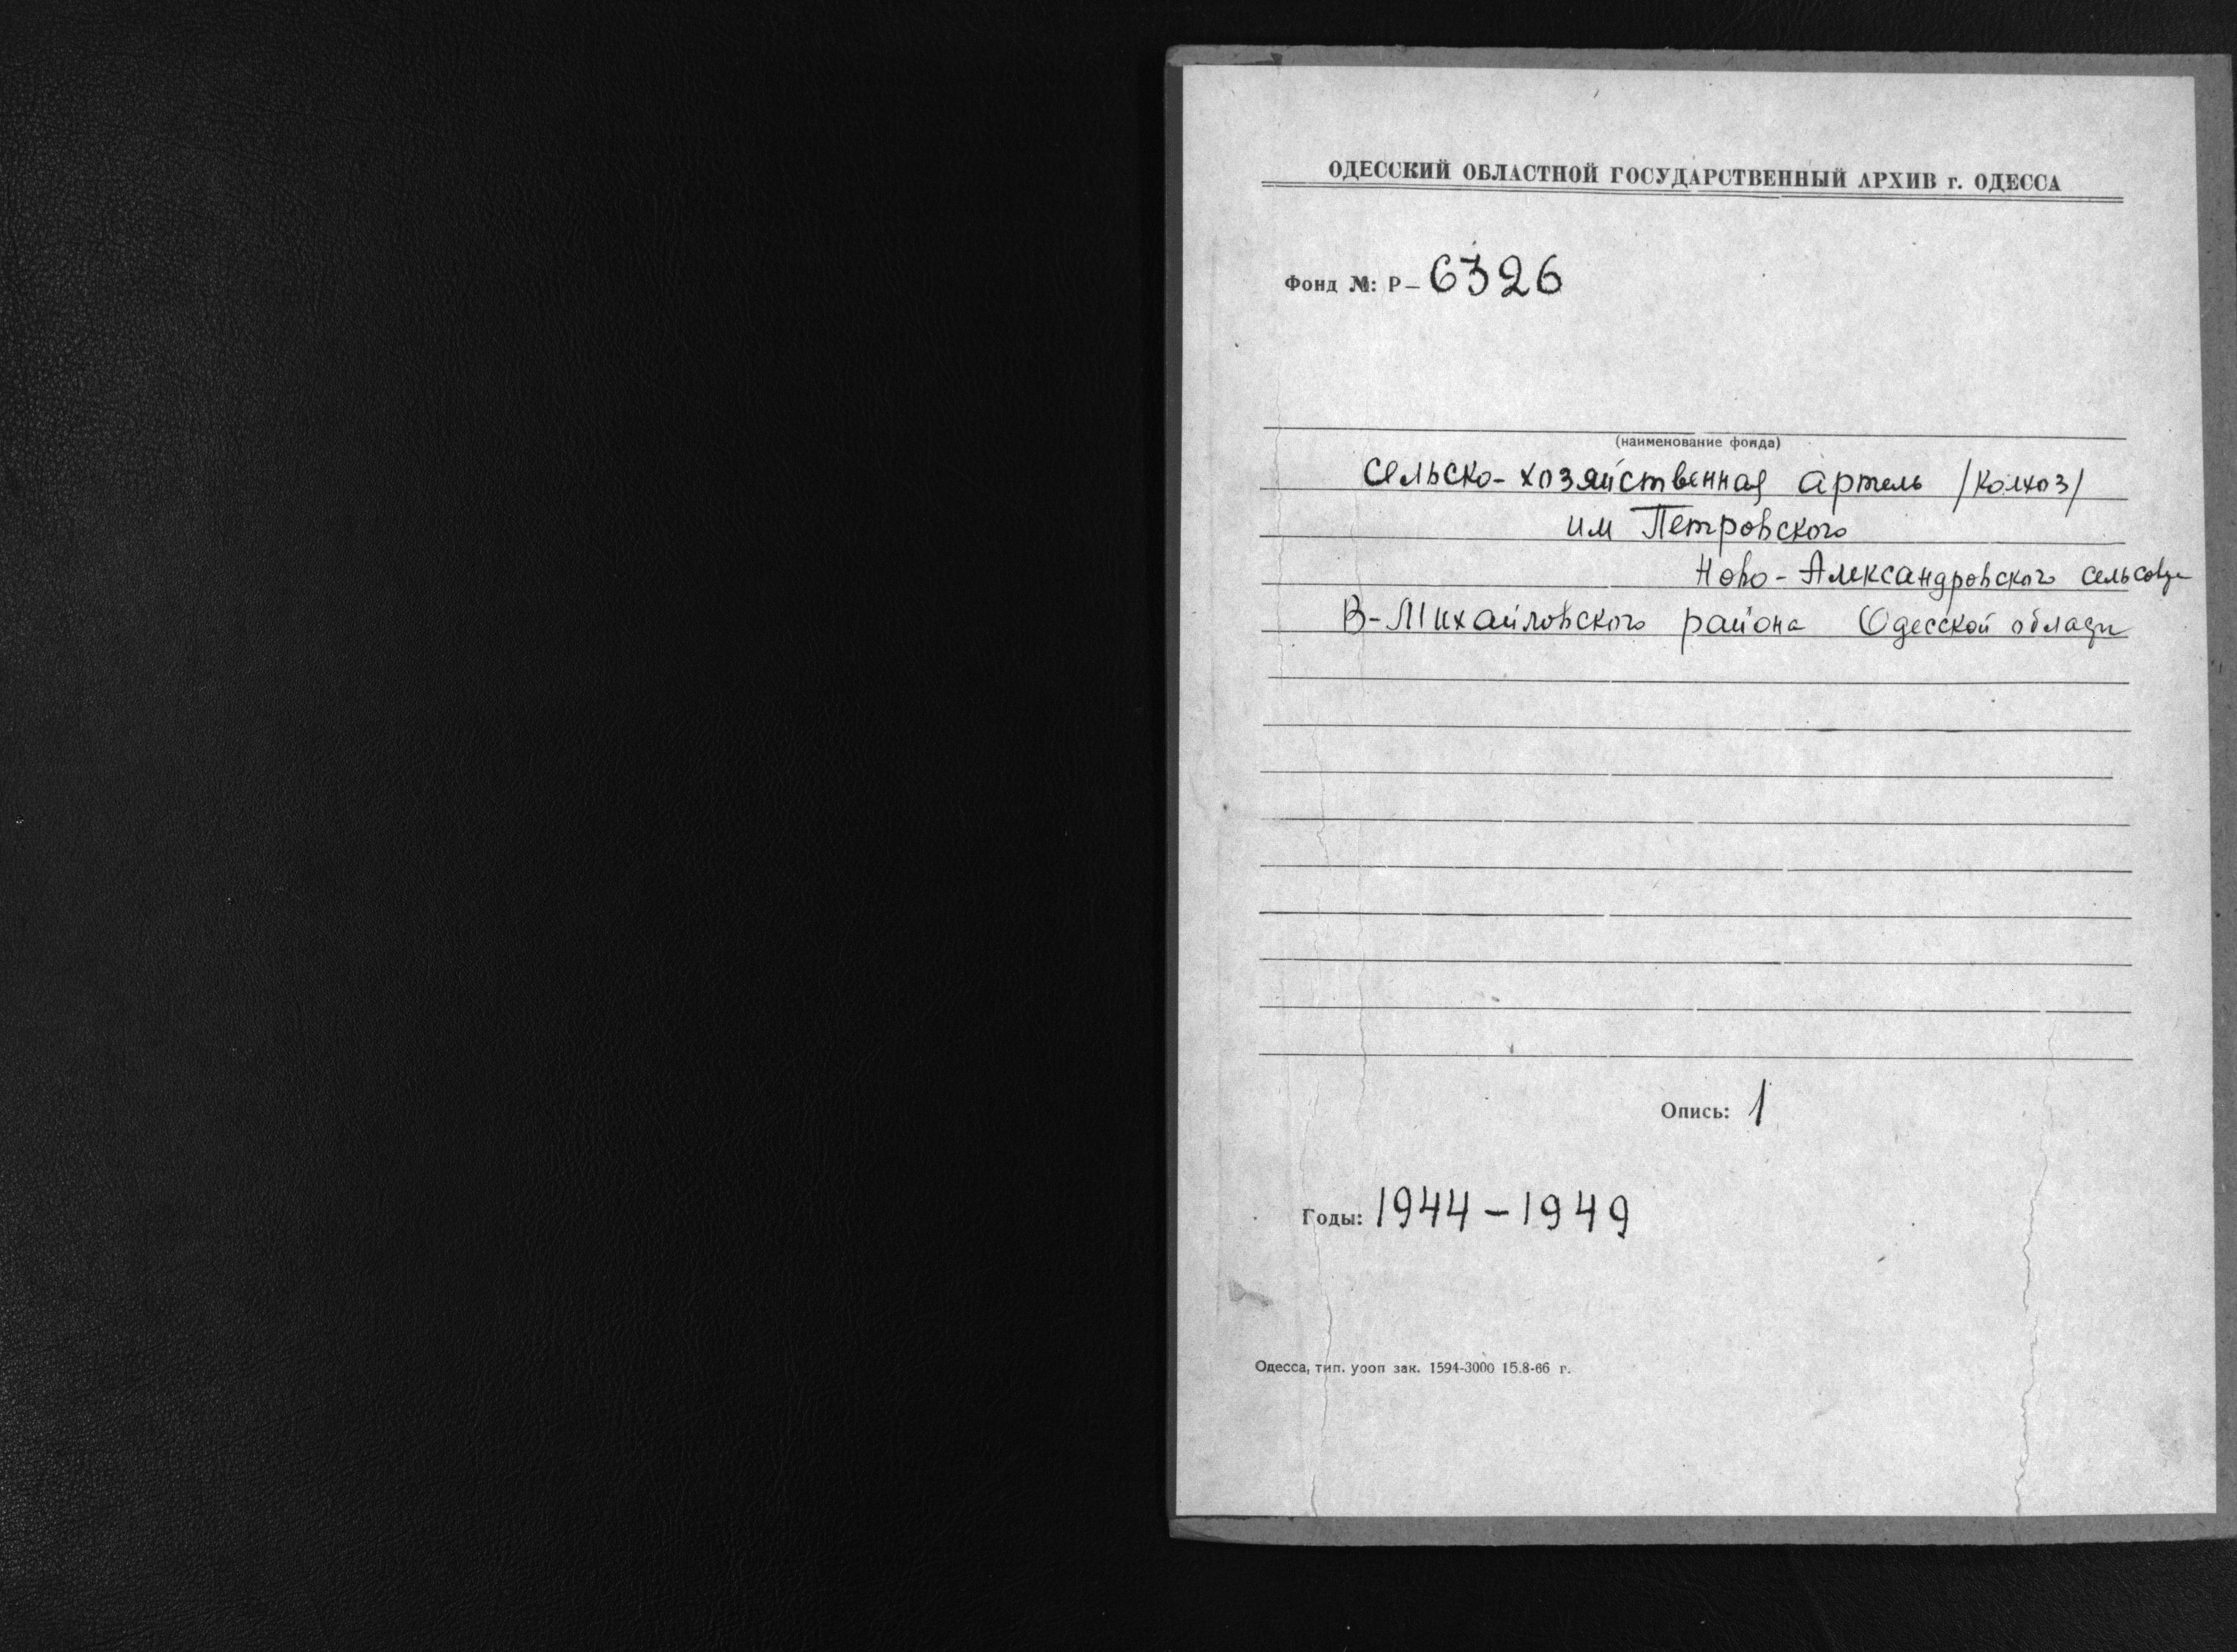 ОДЕССКИЙ ОБЛАСТНОЙ ГОСУДАРСТВЕННЫЙ АРХИВ г. ОДЕССА
Фонд №: Р– 6326
(наименование фонда)
Сельско-хозяйственная артель /колхоз/
им Петровского
Ново-Александровского сельсовета
В-Михайловского района Одесской области
Опись: 1
Годы: 1944–1949
Одесса, тип. уооп зак. 1594-3000 15.8-66 г.